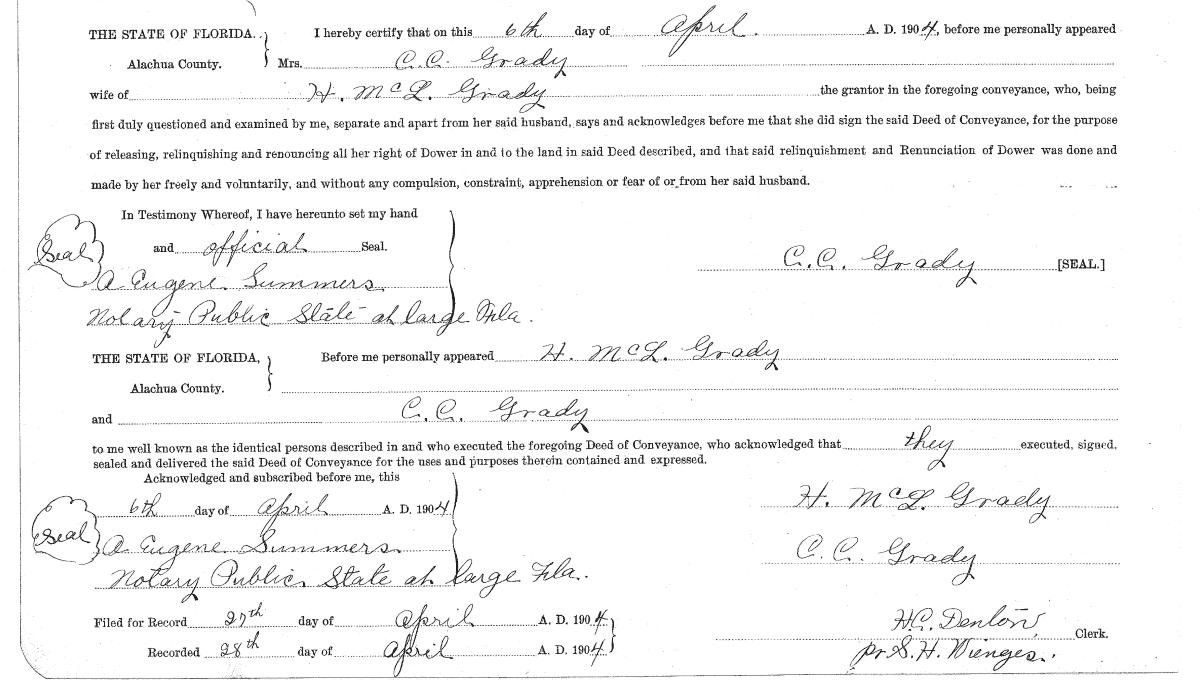 THE STATE OF FLORIDA. I hereby certify that on this 6th day of April. A. D. 1904, before me personally appeared
Alachua County. Mrs. C.C. Grady
wife of H. McL. Grady the grantor in the foregoing conveyance, who, being
first duly questioned and examined by me, separate and apart from her said husband, says and acknowledges before me that she did sign the said Deed of Conveyance, for the purpose
of releasing, relinquishing and renouncing all her right of Dower in and to the land in said Deed described, and that said relinquishment and Renunciation of Dower was done and
made by her freely and voluntarily, and without any compulsion, constraint, apprehension or fear of or from her said husband.
In Testimony Whereof, I have hereunto set my hand
Seal and official Seal.
C.C. Grady [SEAL.]
A Eugene Summers
Notary Public State at large Fla.
THE STATE OF FLORIDA, Before me personally appeared H. McL. Grady
Alachua County.
and C.C. Grady
to me well known as the identical persons described in and who executed the foregoing Deed of Conveyance, who acknowledged that they executed, signed,
sealed and delivered the said Deed of Conveyance for the uses and purposes therein contained and expressed.
Acknowledged and subscribed before me, this
6th day of April A. D. 1904
H. McL. Grady
Seal A Eugene Summers
C.C. Grady
Notary Public State at large Fla.
Filed for Record 27th day of April A. D. 1904
H.C. Denton, Clerk.
Recorded 28th day of April A. D. 1904
pr S.H. Wienges.